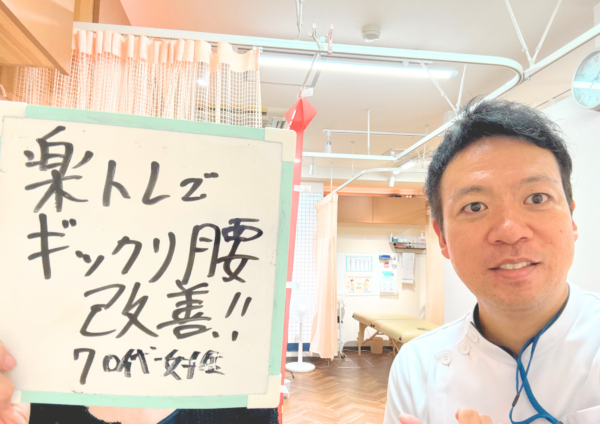 楽トレで
ギックリ腰
改善!!
70代女性